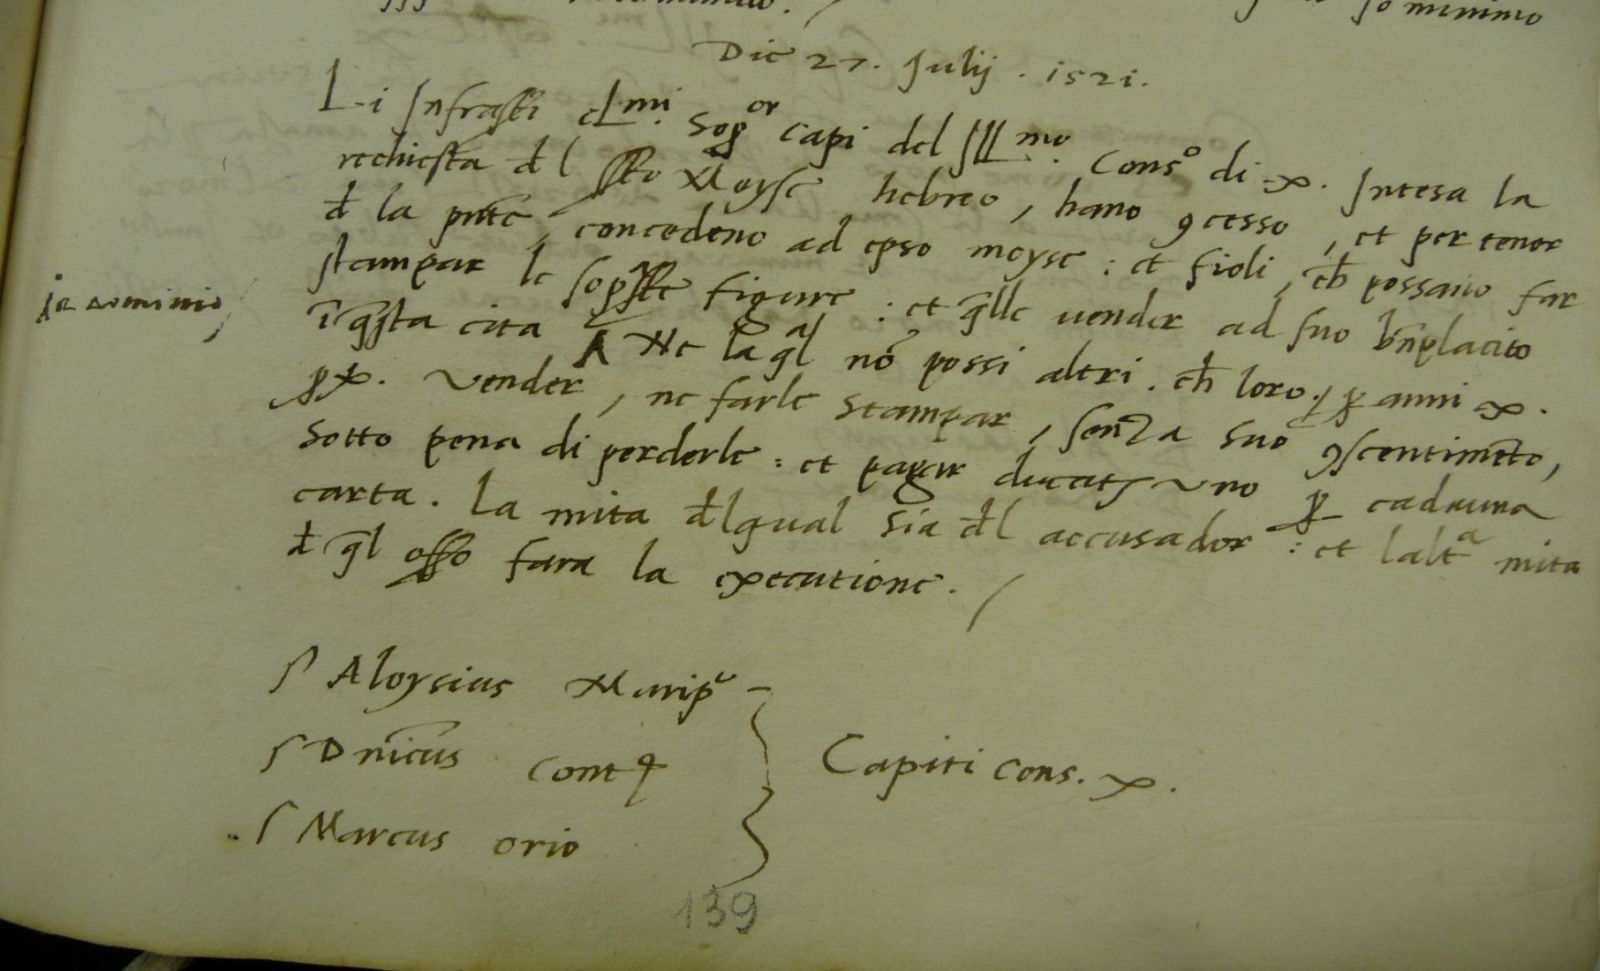 Die 27. Julij. 1521.
Li Infrascti clmi. Sogor capi del Illmo. Conso di x. Intesa la
rechiesta đl sto Moyse hebreo, hano ꝯcesso, et per tenor
đ la pnte, concedeno ad epso moyse: et fioli, ch possano far
stampar le sopste figure: et qlle uender ad suo bnplacito
i qsta cita Λ Ne la ql no possi altri. ch loro ꝑ anni x.
ꝑ x. Vender, ne farle stampar, senza suo ꝯsentimeto,
Sotto pena di perderle: et pagar ducati Vno ꝑ cadauna
carta. La mita đlqual sia đl accusador: et laltª mita
đ ql offo fara la executione.
i dominio
Aloysius Marip
Dnicus cont
Marcus orio
Capiti cons. x.
139